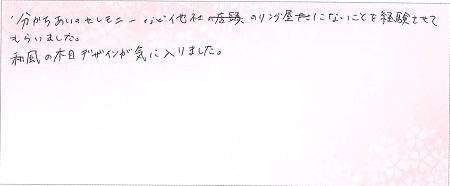 分かちあいのセレモニーなど他社の店頭のリング屋さんにないことを経験させて
もらいました。
和風の木目デザインが気に入りました。